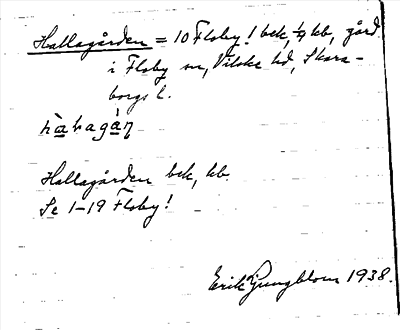 Hallagården = 10 Floby! bek, 1/4 kb, gård.
i Floby sn, Vilske hd, Skara-
borgs l.
Hallagården bek, kb.
Se 1-19 Floby!
Erik Ljungblom 1938.